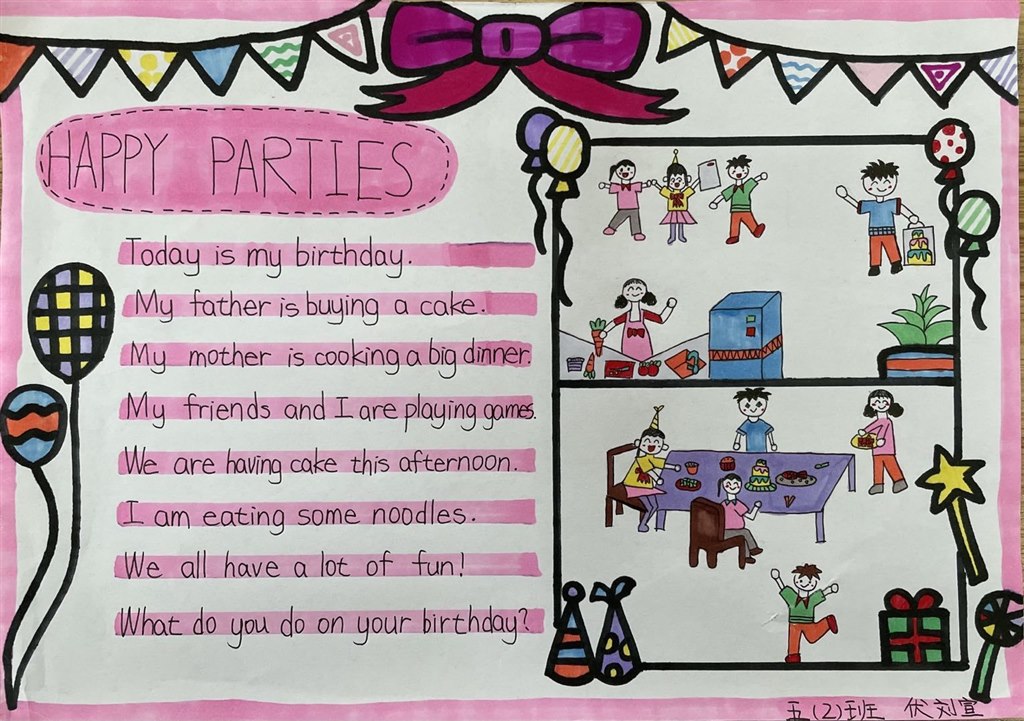 HAPPY PARTIES
Today is my birthday.
My father is buying a cake.
My mother is cooking a big dinner.
My friends and I are playing games.
We are having cake this afternoon.
I am eating some noodles.
We all have a lot of fun!
What do you do on your birthday?
五(2)班 伏刘宣